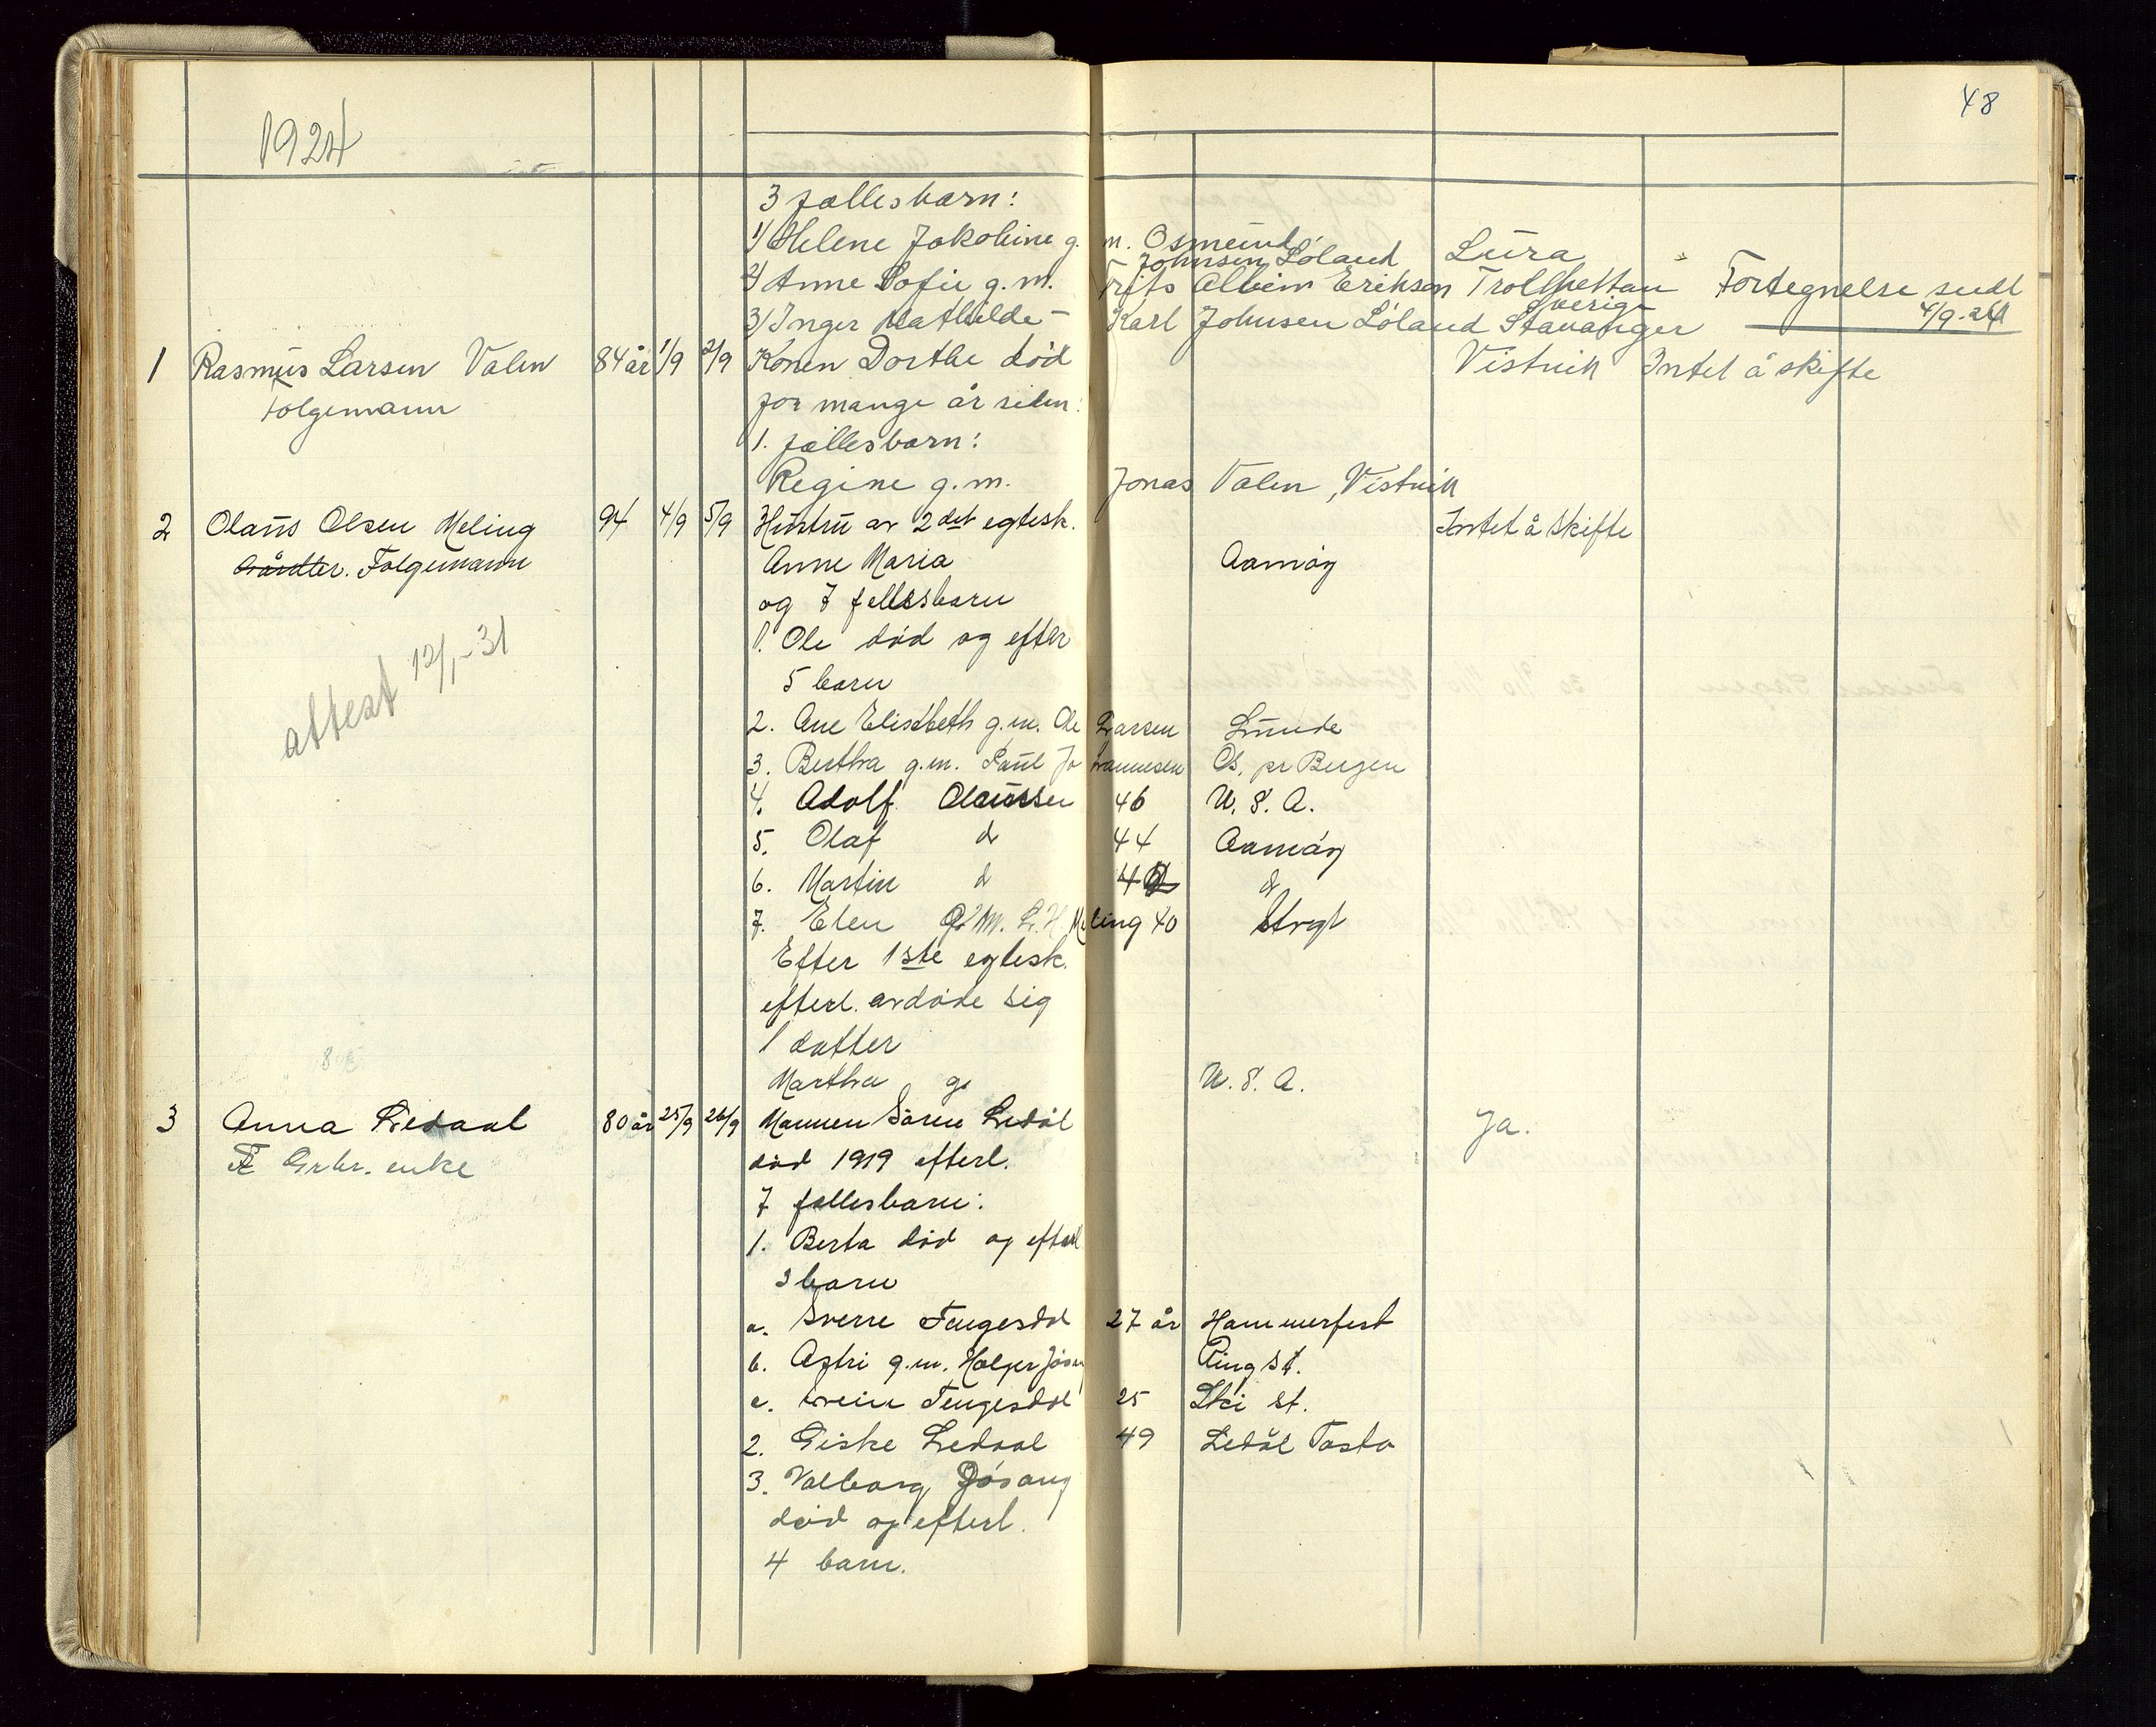 48
1924
3 fællesbarn:
1/ Helene Jakobine g. m. Osmund Johnsen Löland Lura
2/ Anne Sofie g. m. Frits Albin Erikson Trollhettan Sverige Fortegnelse sendt
3/ Inger Mathilde - Karl Johnsen Löland Stavanger 4/9-24
1 Rasmus Larsen Valen 84 år 1/9 2/9 Konen Dorthe död Vistvik Intet å skifte
Folgemann for mange år siden:
1. fællesbarn:
Regine g. m. Jonas Valen, Vistvik
2 Olaus Olsen Meling 94 4/9 5/9 Hustru av 2det egtesk. Intet å skifte
Gårdbr. Folgemann Anne Maria Aamöy
og 7 fellesbarn
1. Ole död og efterl
attest 12/1-31 5 barn
2. Ane Elisabeth g. m. Ole Larsen Lunde
3. Bertha g. m. Paul Johannesen Os, pr Bergen
4. Adolf Olaussen 46 U. S. A.
5. Olaf d 44 Aamöy
6. Martin d d
7. Elen G. M. L. H. Meling 40 Strgt
Efter 1ste egtesk.
efterl. avdöde sig
1 datter
Martha g. U. S. A.
3 Anna Ledaal 80 år 25/9 26/9 Mannen Sören Ledål Ja.
Grbr. enke död 1919 efterl.
7 fellesbarn:
1. Berta död og efterl
3 barn
a. Sverre Tengesdal 27 år Hammerfest
b. Astri g. m. Holger Jösang Ring st.
c. Svein Tengesdal 25 Ski st.
2. Giske Ledaal 49 Ledål Tasta
3. Valborg Jösang
död og efterl.
4 barn.